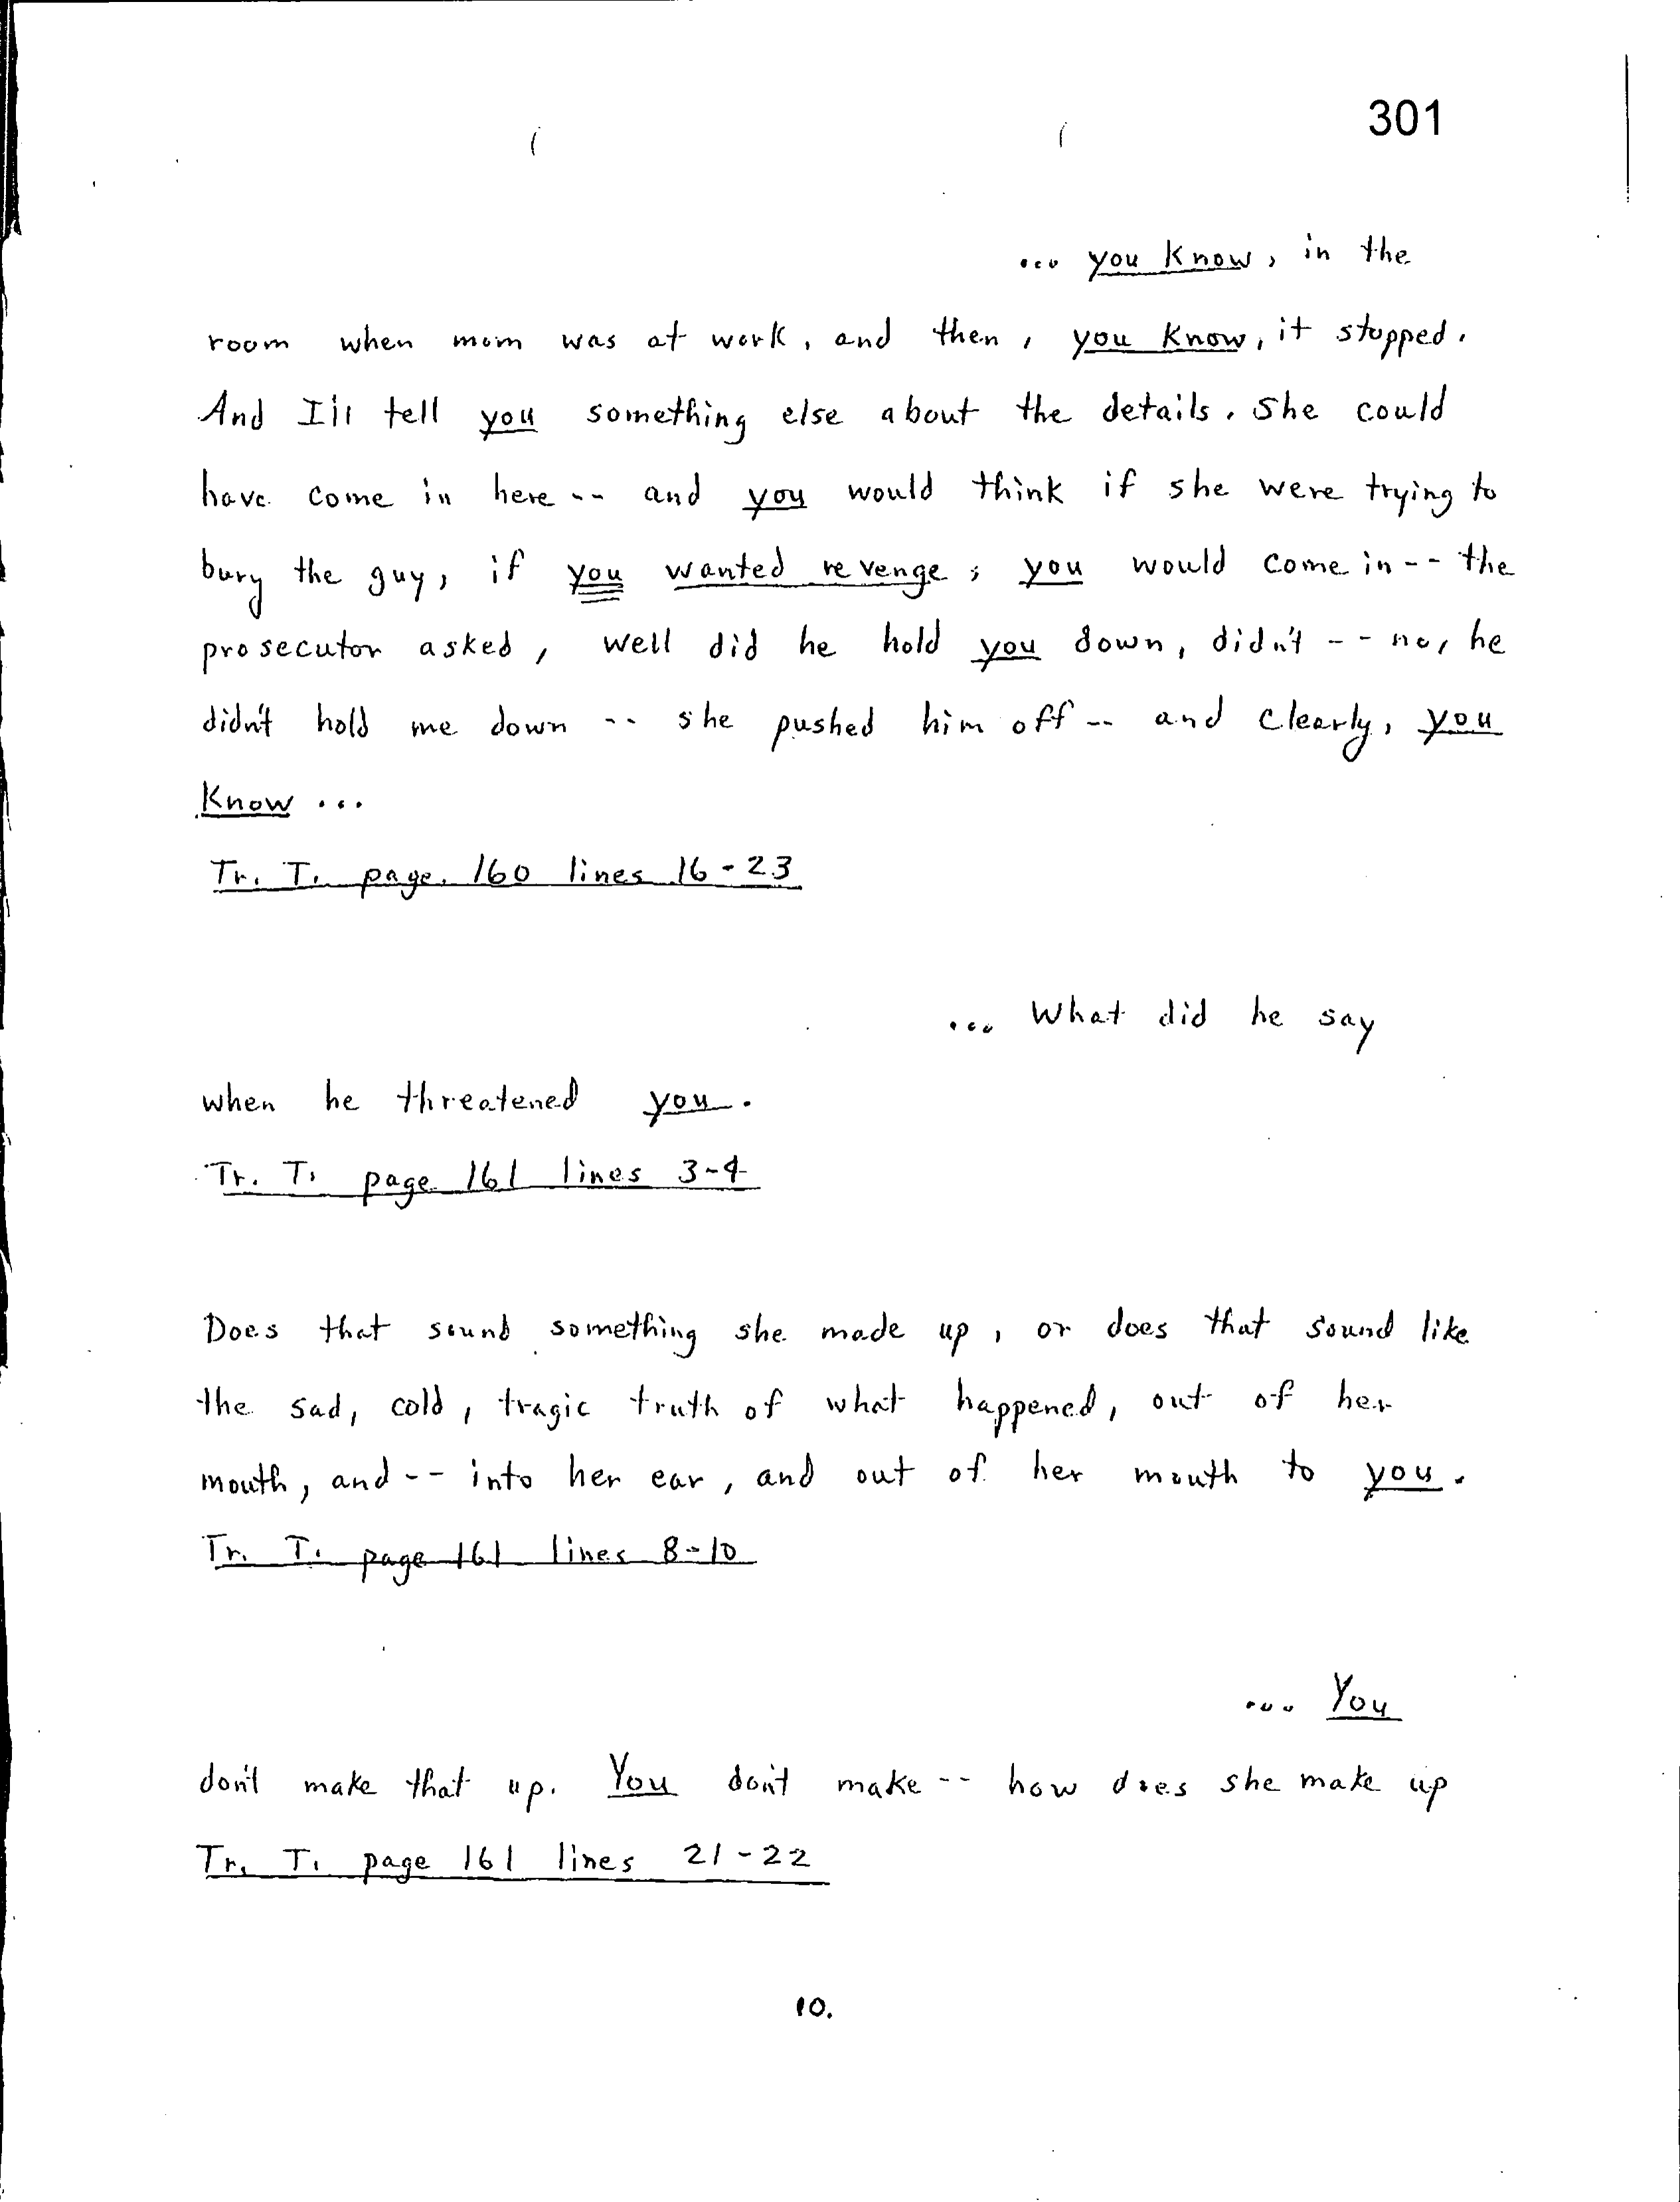 301
... you know, in the
room when mom was at work, and then, you know, it stopped.
And I'll tell you something else about the details. She could
have come in here -- and you would think if she were trying to
bury the guy, if you wanted revenge, you would come in -- the
prosecutor asked, well did he hold you down, didn't -- no, he
didn't hold me down -- she pushed him off -- and clearly, you
know ...
Tr. T. page. 160 lines 16-23
... What did he say
when he threatened you.
Tr. T. page 161 lines 3-4
Does that sound something she made up, or does that sound like
the sad, cold, tragic truth of what happened, out of her
mouth, and -- into her ear, and out of her mouth to you.
Tr. T. page 161 lines 8-10
... You
don't make that up. You don't make -- how does she make up
Tr. T. page 161 lines 21-22
10.